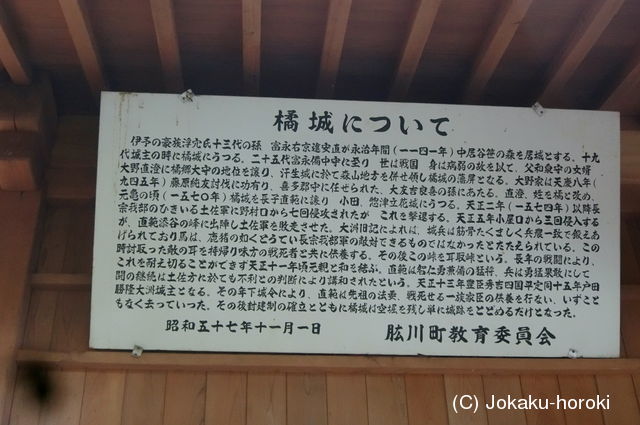 橘城について
伊予の豪族浮穴氏十三代の孫 富永右京遠安直が永治年間(一一四一年)中居谷笹の森を居城とする。十九
代城主の時に橘城にうつる。二十五代富永備中に至り 世は戦国 身は病弱の故を以て 父和泉中の女婿
大野直澄に橘郷大守の地位を譲り、汗生城に於て森山地方を併せ領し橘城の藩屏となる。大野家は天慶八年(
九四五年)藤原純友討伐に功有り、喜多郡中に任せられた、大友吉良喜の孫にあたる、直澄、姓を橘と改め、
元亀の頃(一五七〇年)橘城を長子直範に譲り 小田、惣津立花城にうつる。天正二年(一五七四年)以降長
宗我部のひきいる土佐軍に野村口から七回侵攻されたが これを撃退する。天正五年小屋口から三回侵入する
が、直範添谷の峰に出陣し土佐軍を敗走させた。大洲旧記によれば、城兵は筋骨たくましく兵農一致で鍛えあ
げられており馬は、鹿猪の如くとうてい長宗我部軍の敵対できるものではなかったとたたえられている。この
時討取った敵の耳を持帰り味方の戦死者と共に供養する。その後この峰を耳取峠という。長年の戦闘により、
これを耐え切ることができず天正十一年頃元親と和を結ぶ。直範は智仁勇兼備の猛将、兵は勇猛果敢にして
闘の継続は土佐方に於ても不利との判断により講和されたという。天正十三年豊臣秀吉四国平定同十五年戸田
勝隆大洲城主となる。その年下城令により、直範は先祖の法要、戦死せる一族家臣の供養を行ない、いずこと
もなく去っていった。その後封建制の確立とともに橘城は空堀を残し単に城跡をとどめるだけとなった。
昭和五十七年十一月一日
肱川町教育委員会
(C) Jokaku-horoki